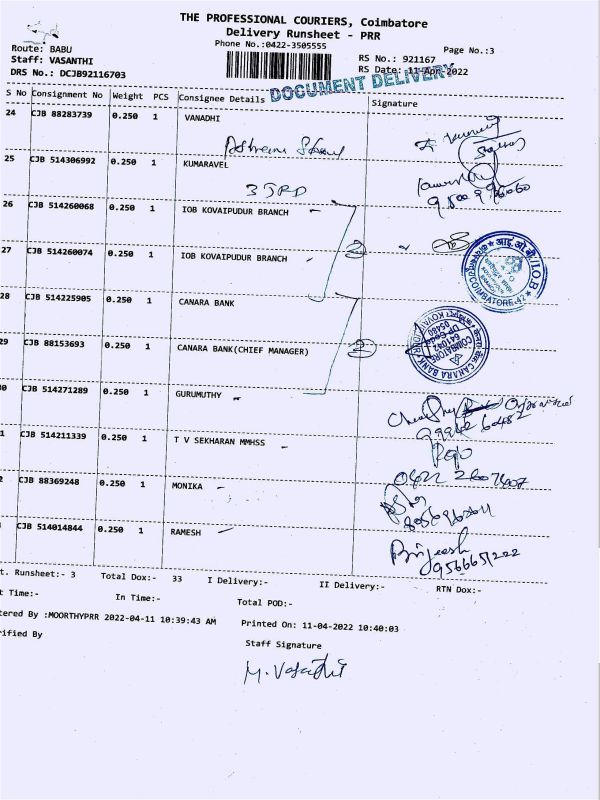 THE PROFESSIONAL COURIERS, Coimbatore
Delivery Runsheet - PRR
Phone No.:0422-3505555
Page No.:3
Route: BABU
Staff: VASANTHI
DRS No.: DCJB92116703
RS No.: 921167
RS Date: 11-Apr-2022
DOCUMENT DELIVERY
S No Consignment No Weight PCS Consignee Details Signature
24 CJB 88283739 0.250 1 VANADHI
25 CJB 514306992 0.250 1 KUMARAVEL
26 CJB 514260068 0.250 1 IOB KOVAIPUDUR BRANCH
2
27 CJB 514260074 0.250 1 IOB KOVAIPUDUR BRANCH
आइ.ओ.बी./I.O.B
COIMBATORE-42
28 CJB 514225905 0.250 1 CANARA BANK
29 CJB 88153693 0.250 1 CANARA BANK(CHIEF MANAGER)
2
CANARA BANK
COIMBATORE
641042
0 CJB 514271289 0.250 1 GURUMUTHY
1 CJB 514211339 0.250 1 T V SEKHARAN MMHSS
0422 2607007
2 CJB 88369248 0.250 1 MONIKA
CJB 514014844 0.250 1 RAMESH
Brijeesh
9566651222
t. Runsheet:- 3 Total Dox:- 33 I Delivery:- II Delivery:- RTN Dox:-
t Time:- In Time:- Total POD:-
tered By :MOORTHYPRR 2022-04-11 10:39:43 AM Printed On: 11-04-2022 10:40:03
rified By Staff Signature
M. Vasanthi